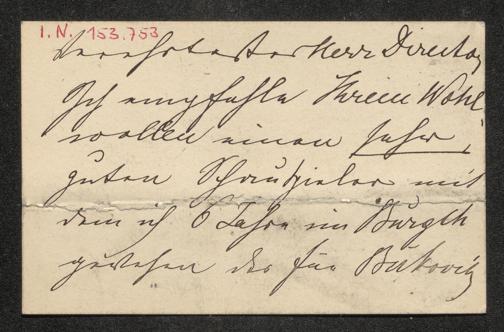 I.N. 153.753
Verehrtester Herr Director
Ich empfehle Ihrem Wohl
wollen einen sehr
guten Schauspieler mit
dem ich 6 Jahre im Burgth
gewesen der für Bukovič